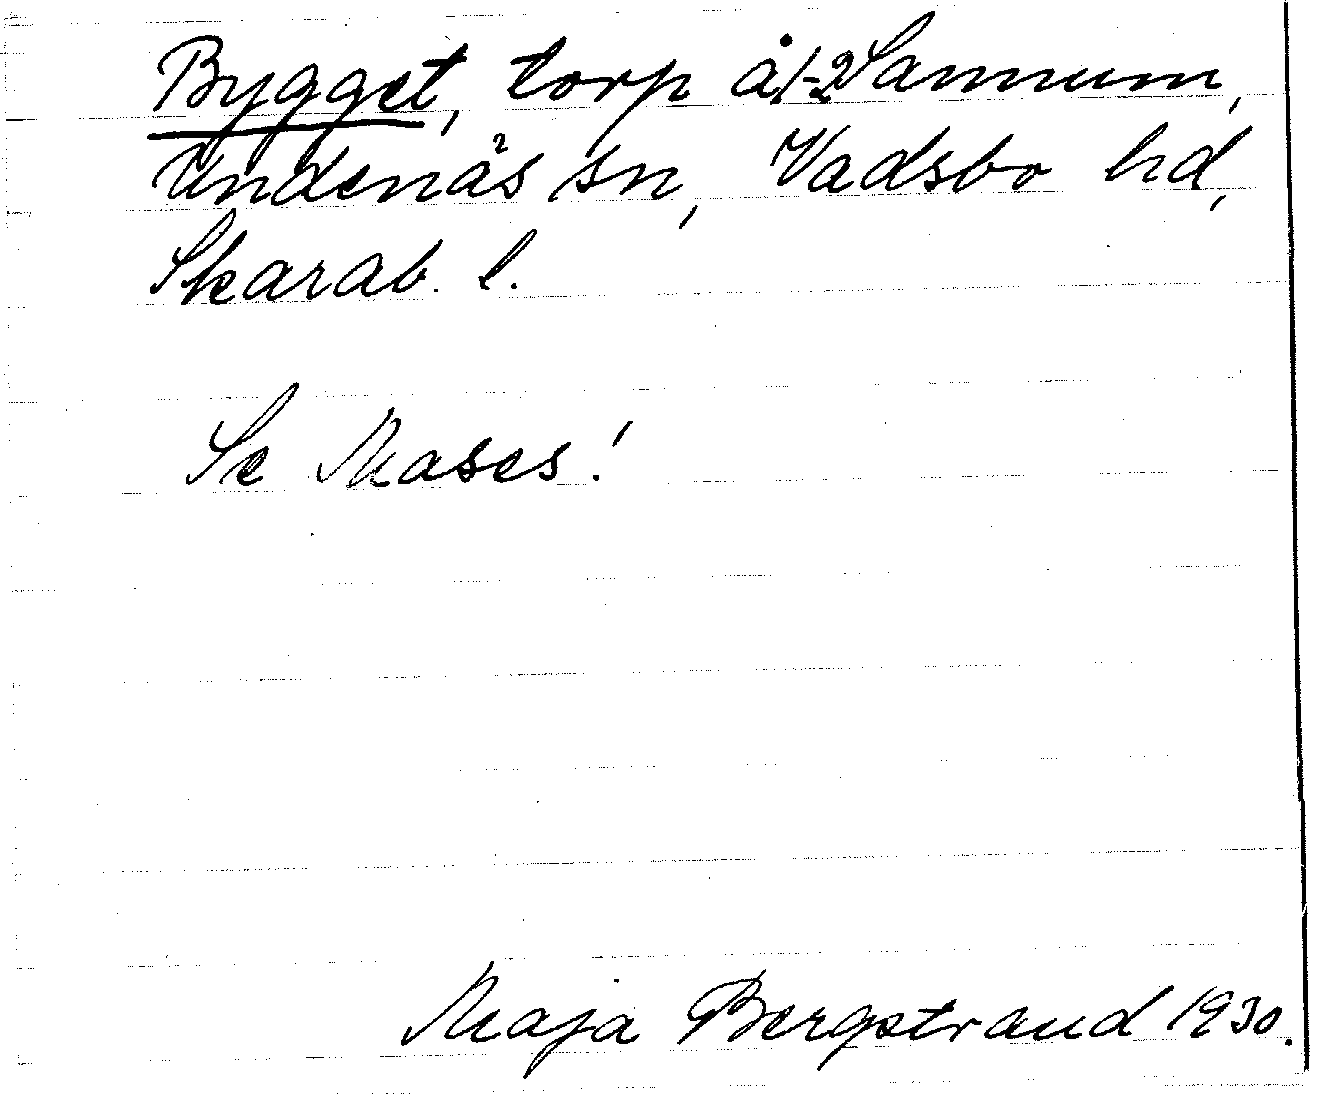 Bygget, torp å 1-2 Sannum,
Undenäs sn, Vadsbo hd,
Skarab. l.
Se Mases!
Maja Bergstrand 1930.